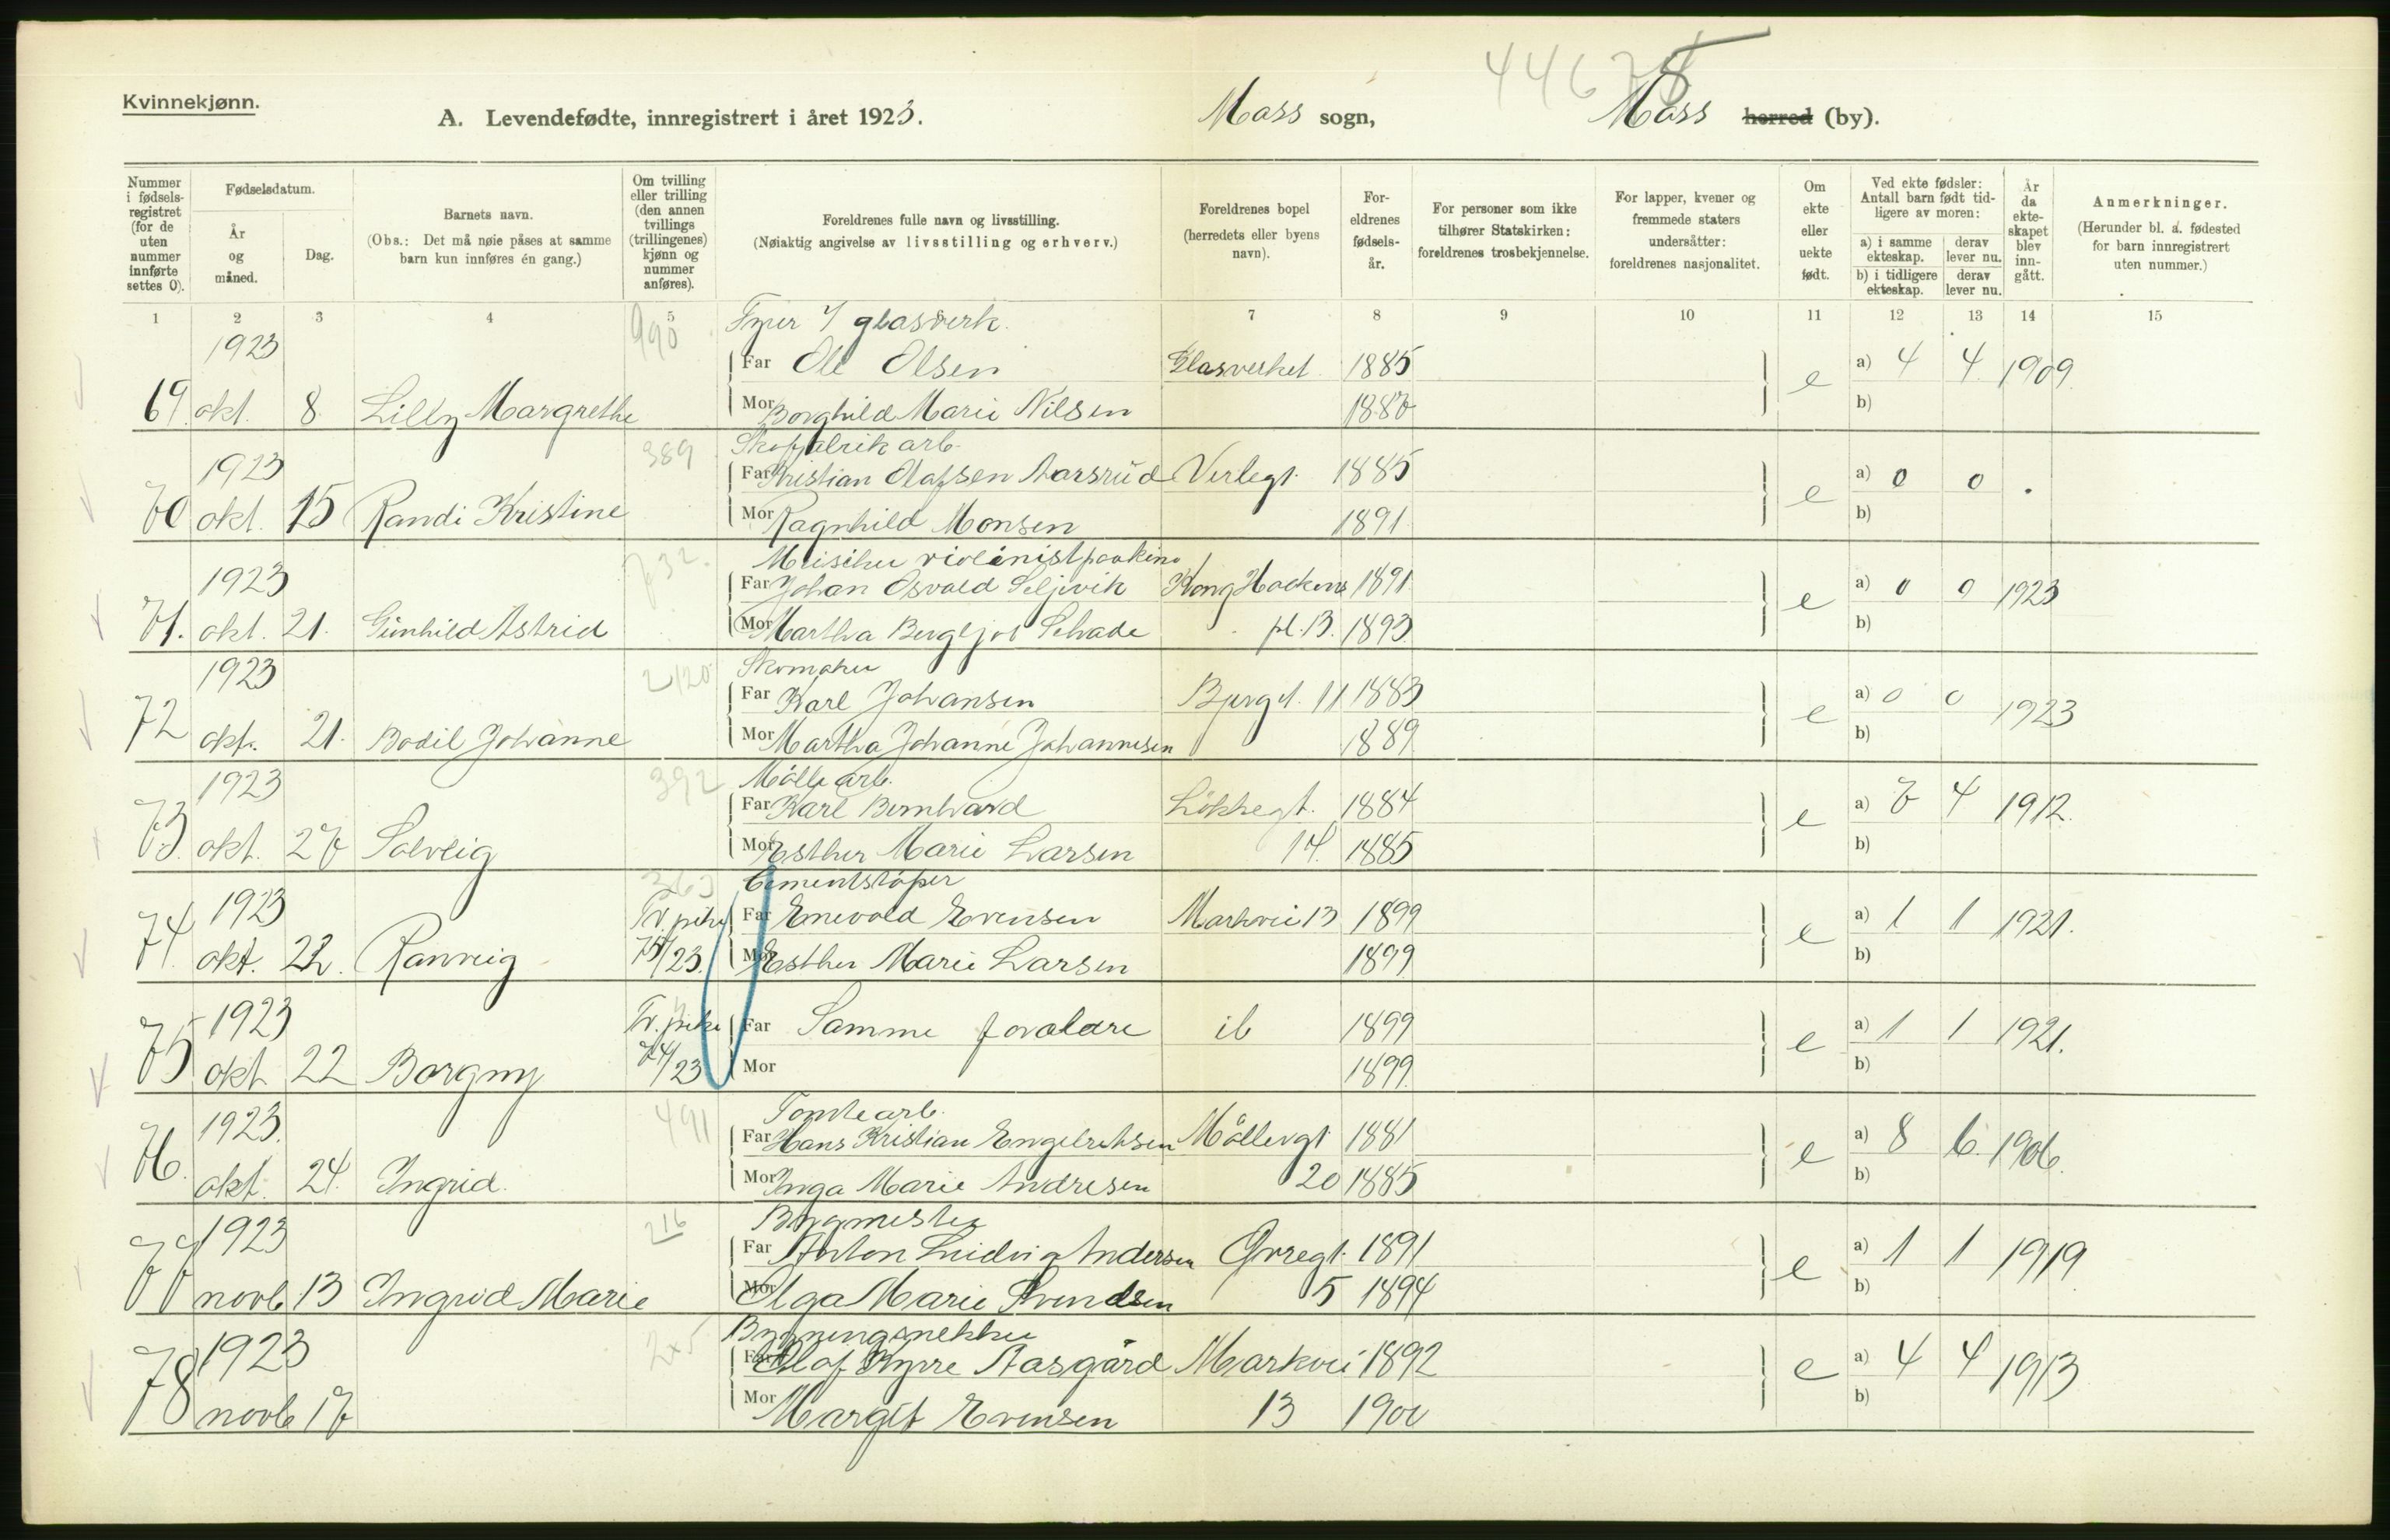 44675
8
Kvinnekjønn.
A. Levendefødte, innregistrert i året 1923.
Moss sogn,
Moss herred (by).
Nummer i fødsels-registret (for de uten nummer innførte settes 0).
Fødselsdatum.
År og måned.
Dag.
Barnets navn.
(Obs.: Det må nøie påses at samme barn kun innføres én gang.)
Om tvilling eller trilling (den annen tvillings (trillingenes) kjønn og nummer anføres).
Foreldrenes fulle navn og livsstilling.
(Nøiaktig angivelse av livsstilling og erhverv.)
Foreldrenes bopel (herredets eller byens navn).
For-eldrenes fødsels-år.
For personer som ikke tilhører Statskirken: foreldrenes trosbekjennelse.
For lapper, kvener og fremmede staters undersåtter: foreldrenes nasjonalitet.
Om ekte eller uekte født.
Ved ekte fødsler: Antall barn født tid-ligere av moren:
a) i samme ekteskap. derav lever nu.
b) i tidligere ekteskap. derav lever nu.
År da ekte-skapet blev inn-gått.
Anmerkninger.
(Herunder bl. a. fødested for barn innregistrert uten nummer.)
1 2 3 4 5 7 8 9 10 11 12 13 14 15
990 Fyrer I glasverk.
1923 Far Ole Olsen Glasverket 1885 e a) 4 4 1909.
69. okt. 8 Lilly Margrethe Mor Borghild Marie Nilsen 1887 b)
389 Skofabrik arb.
1923 Far Kristian Olafsen Aarsrud Verlegt. 1885 e a) 0 0 .
70 okt. 15 Randi Kristine Mor Ragnhild Monsen 1891 b)
732. Musiker violinist paa kino
1923 Far Johan Osvald Seljevik Kong Haakens 1891 e a) 0 0 1923
71. okt. 21. Gunhild Astrid Mor Martha Bergljot Schade pl. 13. 1893. b)
Skomaker
1923 Far Karl Johansen 11 1883 e a) 0 0 1923
72 okt. 21. Bodil Johanne Mor Martha Johanne Johannesen 1889 b)
392 Mølle arb.
1923 Far Karl Bernhard Løkkegt. 1884 e a) 7 4 1912.
73. okt. 27 Solveig Mor Esther Marie Larsen 14. 1885 b)
363 Cementstøper
1923 Tv. pike Far Enevold Evensen Markvei 13 1899 e a) 1 1 1921.
74. okt. 22. Ranveig 75/23. Mor Esther Marie Larsen 1899 b)
1923 Tv. pike Far Samme forældre ib 1899 e a) 1 1 1921.
75 okt 22 Borgny 74/23 Mor 1899. b)
491 Tomte arb.
1923. Far Hans Kristian Engelrektsen Møllergt 1881 e a) 8 6. 1906.
76. okt. 24. Ingrid. Mor Inga Marie Andresen 20 1885 b)
216 Bygmester
1923 Far Anton Ludvig Andersen Orregt. 1891 e a) 1 1 1919.
77 novb 13 Ingrid Marie Mor Olga Marie Svendsen 5 1894 b)
Bygningsnekker
1923 Far Olaf Kyrre Aasgård Markvei 1892 e a) 4 4 1913
78 novb 17 Mor Margit Evensen 13 1900 b)